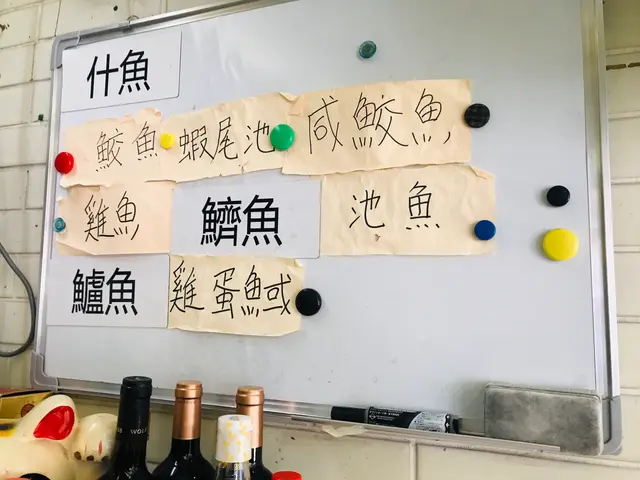 什魚
鮫魚 蝦尾池 咸鮫魚
雞魚 鱭魚 池魚
鱸魚 雞蛋魚或
WOLF